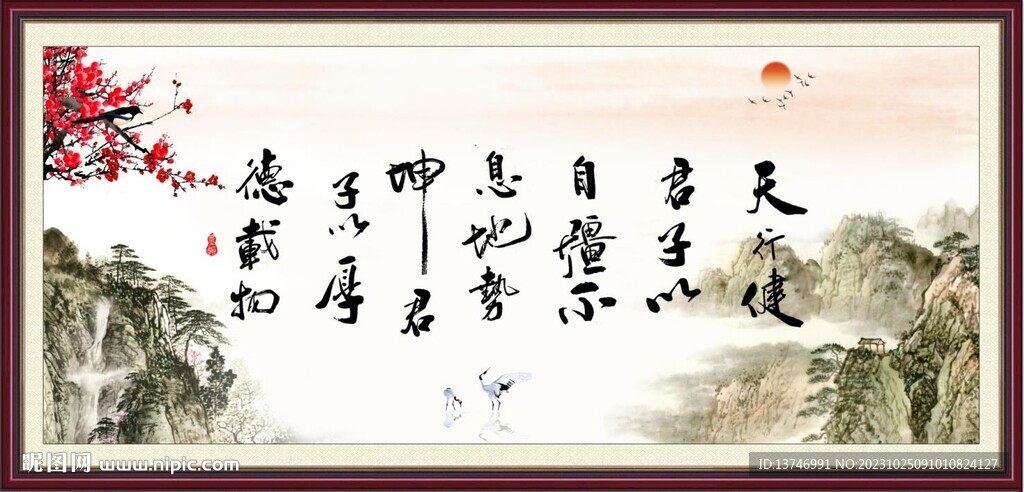 天行健
君子以
自彊不
息地勢
坤君
子以厚
德載物
昵图网 www.nipic.com
ID:13746991 NO:20231025091010824127